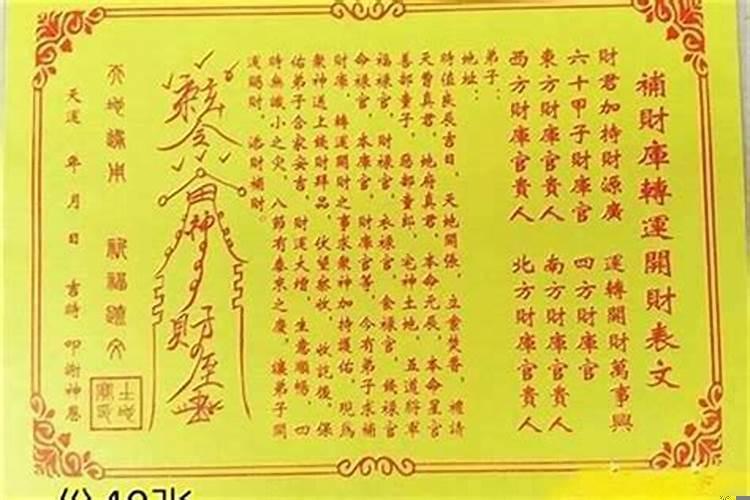 補財庫轉運開財表文
財君加持財源廣 運轉開財萬事興
六十甲子財庫官 四方財庫官
東方財庫官貴人 南方財庫官貴人
西方財庫官貴人 北方財庫官貴人
弟子:
地址:
時值良辰吉日,天地開張,立案焚香,禮請
天曹真君,地府真君,本命元辰,本命星官
善部童子,惡部童郎,宅神土地,五道將軍
福祿官,財祿官,衣祿官,食祿官,錢祿官
命祿官,本庫官,財庫官等,今有弟子求補
財庫,轉運開財之事求眾神加持護佑,現為
眾神送上錢財拜品,伏望察收,收訖後,保
佑弟子合家安吉,財運大增,生意順暢,四
時無讖小之災,八節有泰來之慶,讓弟子開
運賜財,添財補財。
神
財庫
祈福
天運 年 月 日 吉時 叩謝神恩